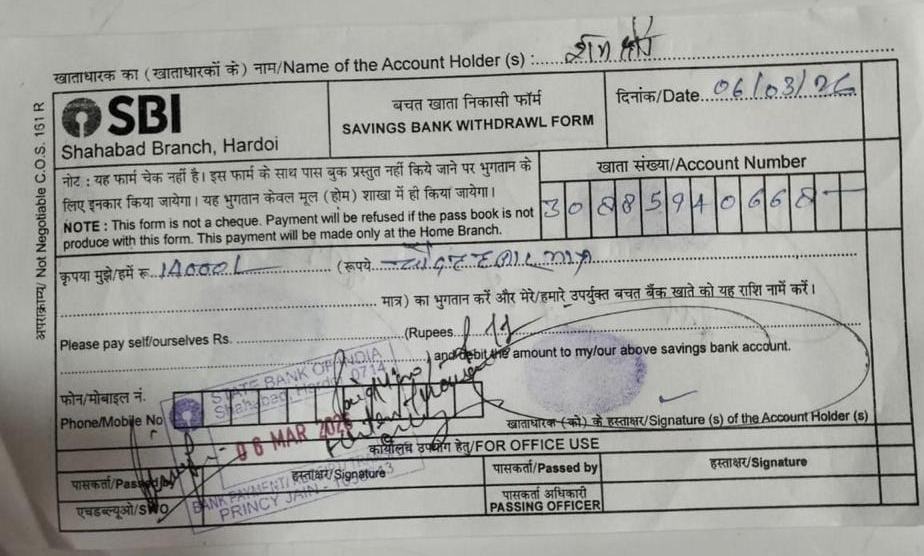 खाताधारक का (खाताधारकों के) नाम/Name of the Account Holder (s) :
SBI
Shahabad Branch, Hardoi
बचत खाता निकासी फॉर्म
SAVINGS BANK WITHDRAWL FORM
दिनांक/Date 06/03/26
अपराक्राम्य/ Not Negotiable C.O.S. 161 R
नोट : यह फार्म चेक नहीं है। इस फार्म के साथ पास बुक प्रस्तुत नहीं किये जाने पर भुगतान के
लिए इनकार किया जायेगा। यह भुगतान केवल मूल (होम) शाखा में ही किया जायेगा।
NOTE : This form is not a cheque. Payment will be refused if the pass book is not
produce with this form. This payment will be made only at the Home Branch.
खाता संख्या/Account Number
कृपया मुझे/हमें रू. 14000/- (रूपये चौदह हजार मात्र
मात्र) का भुगतान करें और मेरे/हमारे उपर्युक्त बचत बैंक खाते को यह राशि नामें करें।
Please pay self/ourselves Rs. (Rupees
) and debit the amount to my/our above savings bank account.
फोन/मोबाइल नं.
Phone/Mobile No
STATE BANK OF INDIA
Shahabad, Hardoi 0714
06 MAR 2026
खाताधारक (को) के हस्ताक्षर/Signature (s) of the Account Holder (s)
कार्यालय उपयोग हेतु/FOR OFFICE USE
पासकर्ता/Passed by
हस्ताक्षर/Signature
पासकर्ता/Passed by
हस्ताक्षर/Signature
एचडब्ल्यूओ/SWO
BANK PAYMENT/
PRINCY JAIN
पासकर्ता अधिकारी
PASSING OFFICER